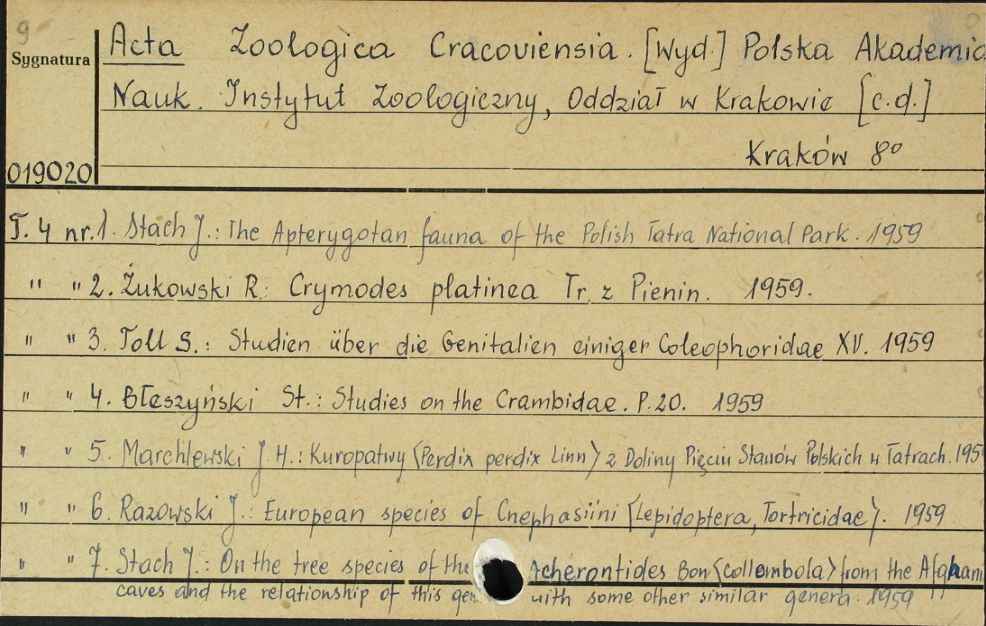 9
Acta Zoologica Cracoviensia. [Wyd.] Polska Akademia
Sygnatura
Nauk. Instytut Zoologiczny, Oddział w Krakowie [c.d.]
Kraków 8°
019020
T. 4 nr. 1. Stach J.: The Apterygotan fauna of the Polish Tatra National Park. 1959
" " 2. Żukowski R: Crymodes platinea Tr. z Pienin. 1959.
" " 3. Toll S.: Studien über die Genitalien einiger Coleophoridae XV. 1959
" " 4. Błeszyński St.: Studies on the Crambidae. P. 20. 1959
" " 5. Marchlewski J. H.: Kuropatwy (Perdix perdix Linn) z Doliny Pięciu Stawów Polskich w Tatrach. 195
" " 6. Razowski J.: European species of Cnephasiini (Lepidoptera, Tortricidae). 1959
" " 7. Stach J.: On the tree species of the Acherontides Bon (Collembola) from the Afghani
caves and the relationship of this gen with some other similar genera. 1959